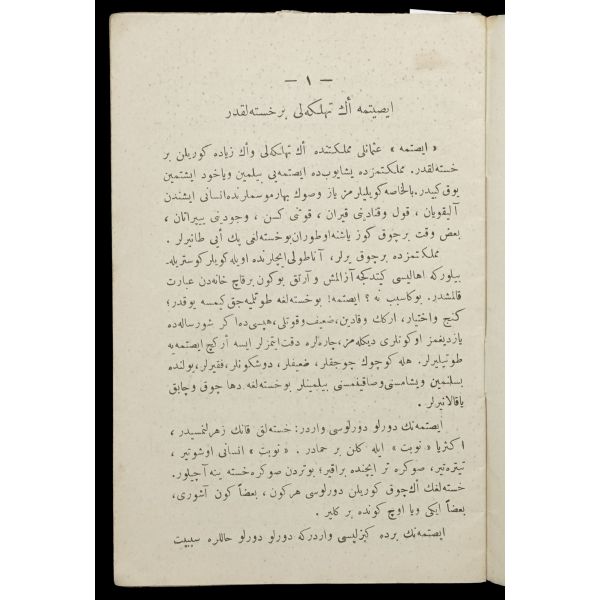 — ١ —
ایصیتمه أڭ تهلكه‌لی بر خسته‌لقدر
« ایصتمه » عثمانلی مملكتنده أڭ تهلكه‌لی وأڭ زیاده كوریلن بر
خسته‌لقدر. مملكتمزده یشایوب‌ده ایصتمه‌یی بیلمین ویاخود ایشتمین
یوق كبیدر. بالخاصه كویلیلرمز یاز وصوڭ بهارموسملرنده انسانی ایشندن
آلیقویان ، قول وقنادینی قیران ، قوتنی كسن ، وجودینی ییپراتان ،
بعض وقت برچوق كوز یاشنه اوطوران بوخسته‌لغی پك أیی طانیرلر .
مملكتمزده برچوق یرلر، آناطولی ایچلرنده اویله كویلر كوستریله‌
بیلورکه اهالیسی كیتدكجه آزالمش و آرتق بوكون برقاچ خانه‌دن عبارت
قالمشدر. بوكا سبب نه ؟ ایصتمه! بوخسته‌لغه طوتلیه‌جق كیمسه یوقدر؛
كنج واختیار، اركك وقادین، ضعیف وقوتلی، هپسی‌ده اكر شورساله‌ده
یازدیغمز اوكوتلری دیكله‌مز، چاره‌لره دقت ایتمزلر ایسه أركچ ایصتمه‌یه
طوتیلیرلر. هله كوچوك چوجقلر، ضعیفلر، دوشكونلر، فقیرلر، یولنده
بسلنمین ویشامسنی وصاقینمسنی بیلمینلر بوخسته‌لغه دها چوق وچابق
یاقالانیرلر .
ایصتمه‌نك دورلو دورلوسی واردر: خسته‌لق قانك زهرلنمسیدر ،
اكثریا « نوبت » ایله كلن بر حمادر . « نوبت » انسانی اوشوتیر ،
تیتره‌تیر، صوكره تر ایچنده براقیر؛ بوتردن صوكره خسته ینه آچیلور.
خسته‌لغك أڭ چوق كوریلن دورلوسی هركون، بعضاً كون آشوری،
بعضاً ایكی ویا اوچ كونده بر كلیر .
ایصتمه‌نك برده كیزلیسی واردركه دورلو دورلو حاللره سببیت